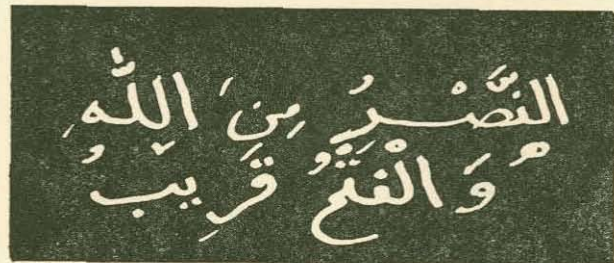 النَّصْرُ مِنَ اللّٰهِ
وَالْفَتْحُ قَرِيبٌ